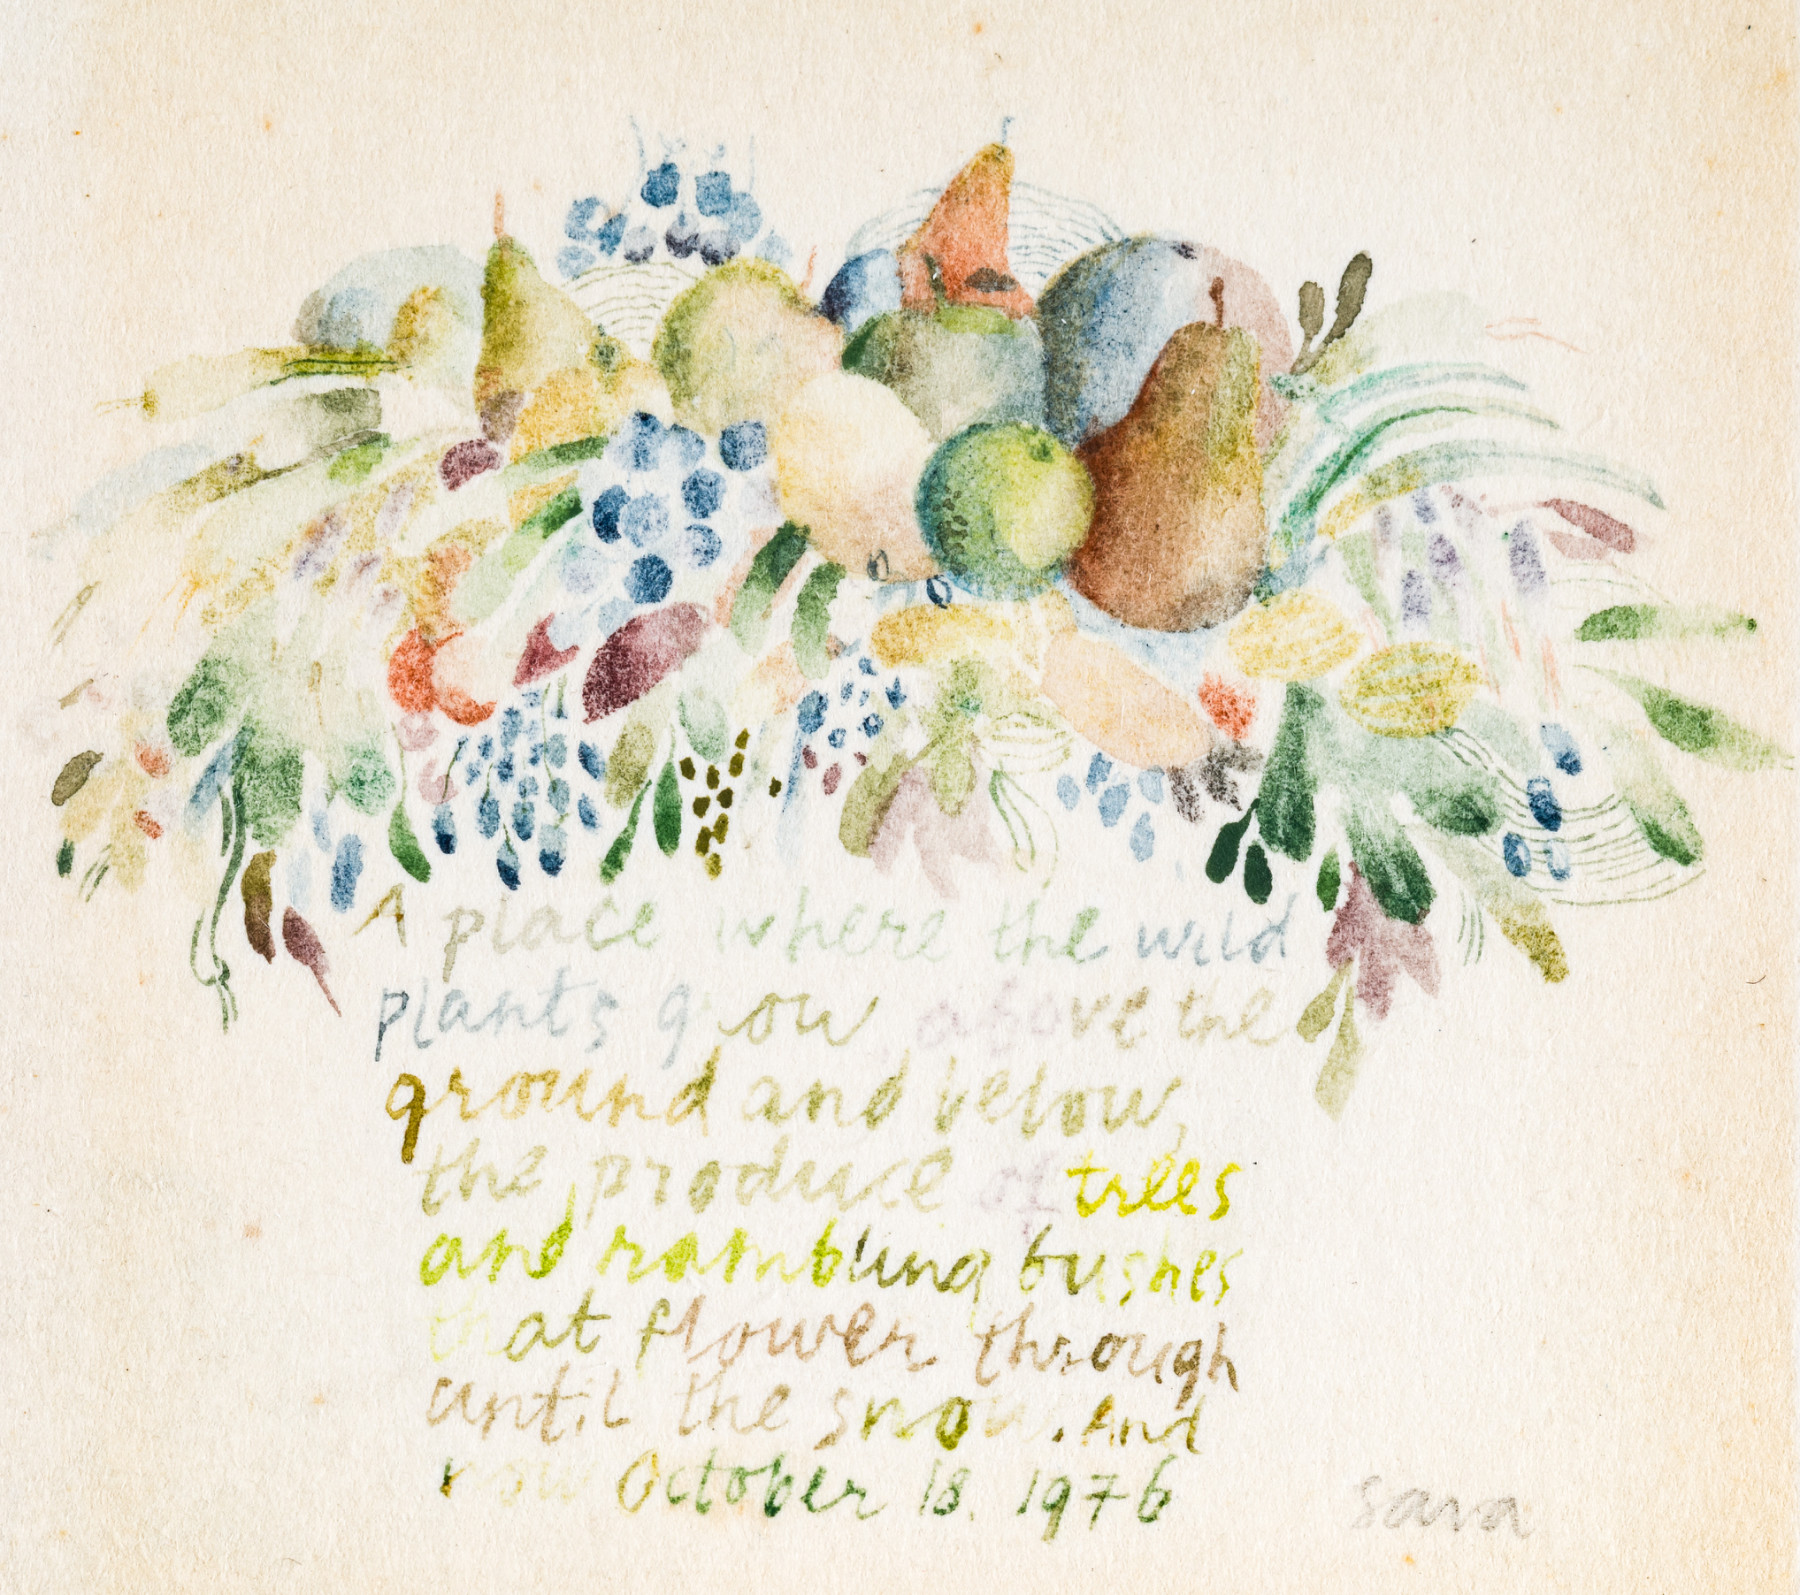 A place where the wild
plants grow above the
ground and below,
the produce of trees
and rambling bushes
that flower through
until the snow. And
now October 18. 1976
sara